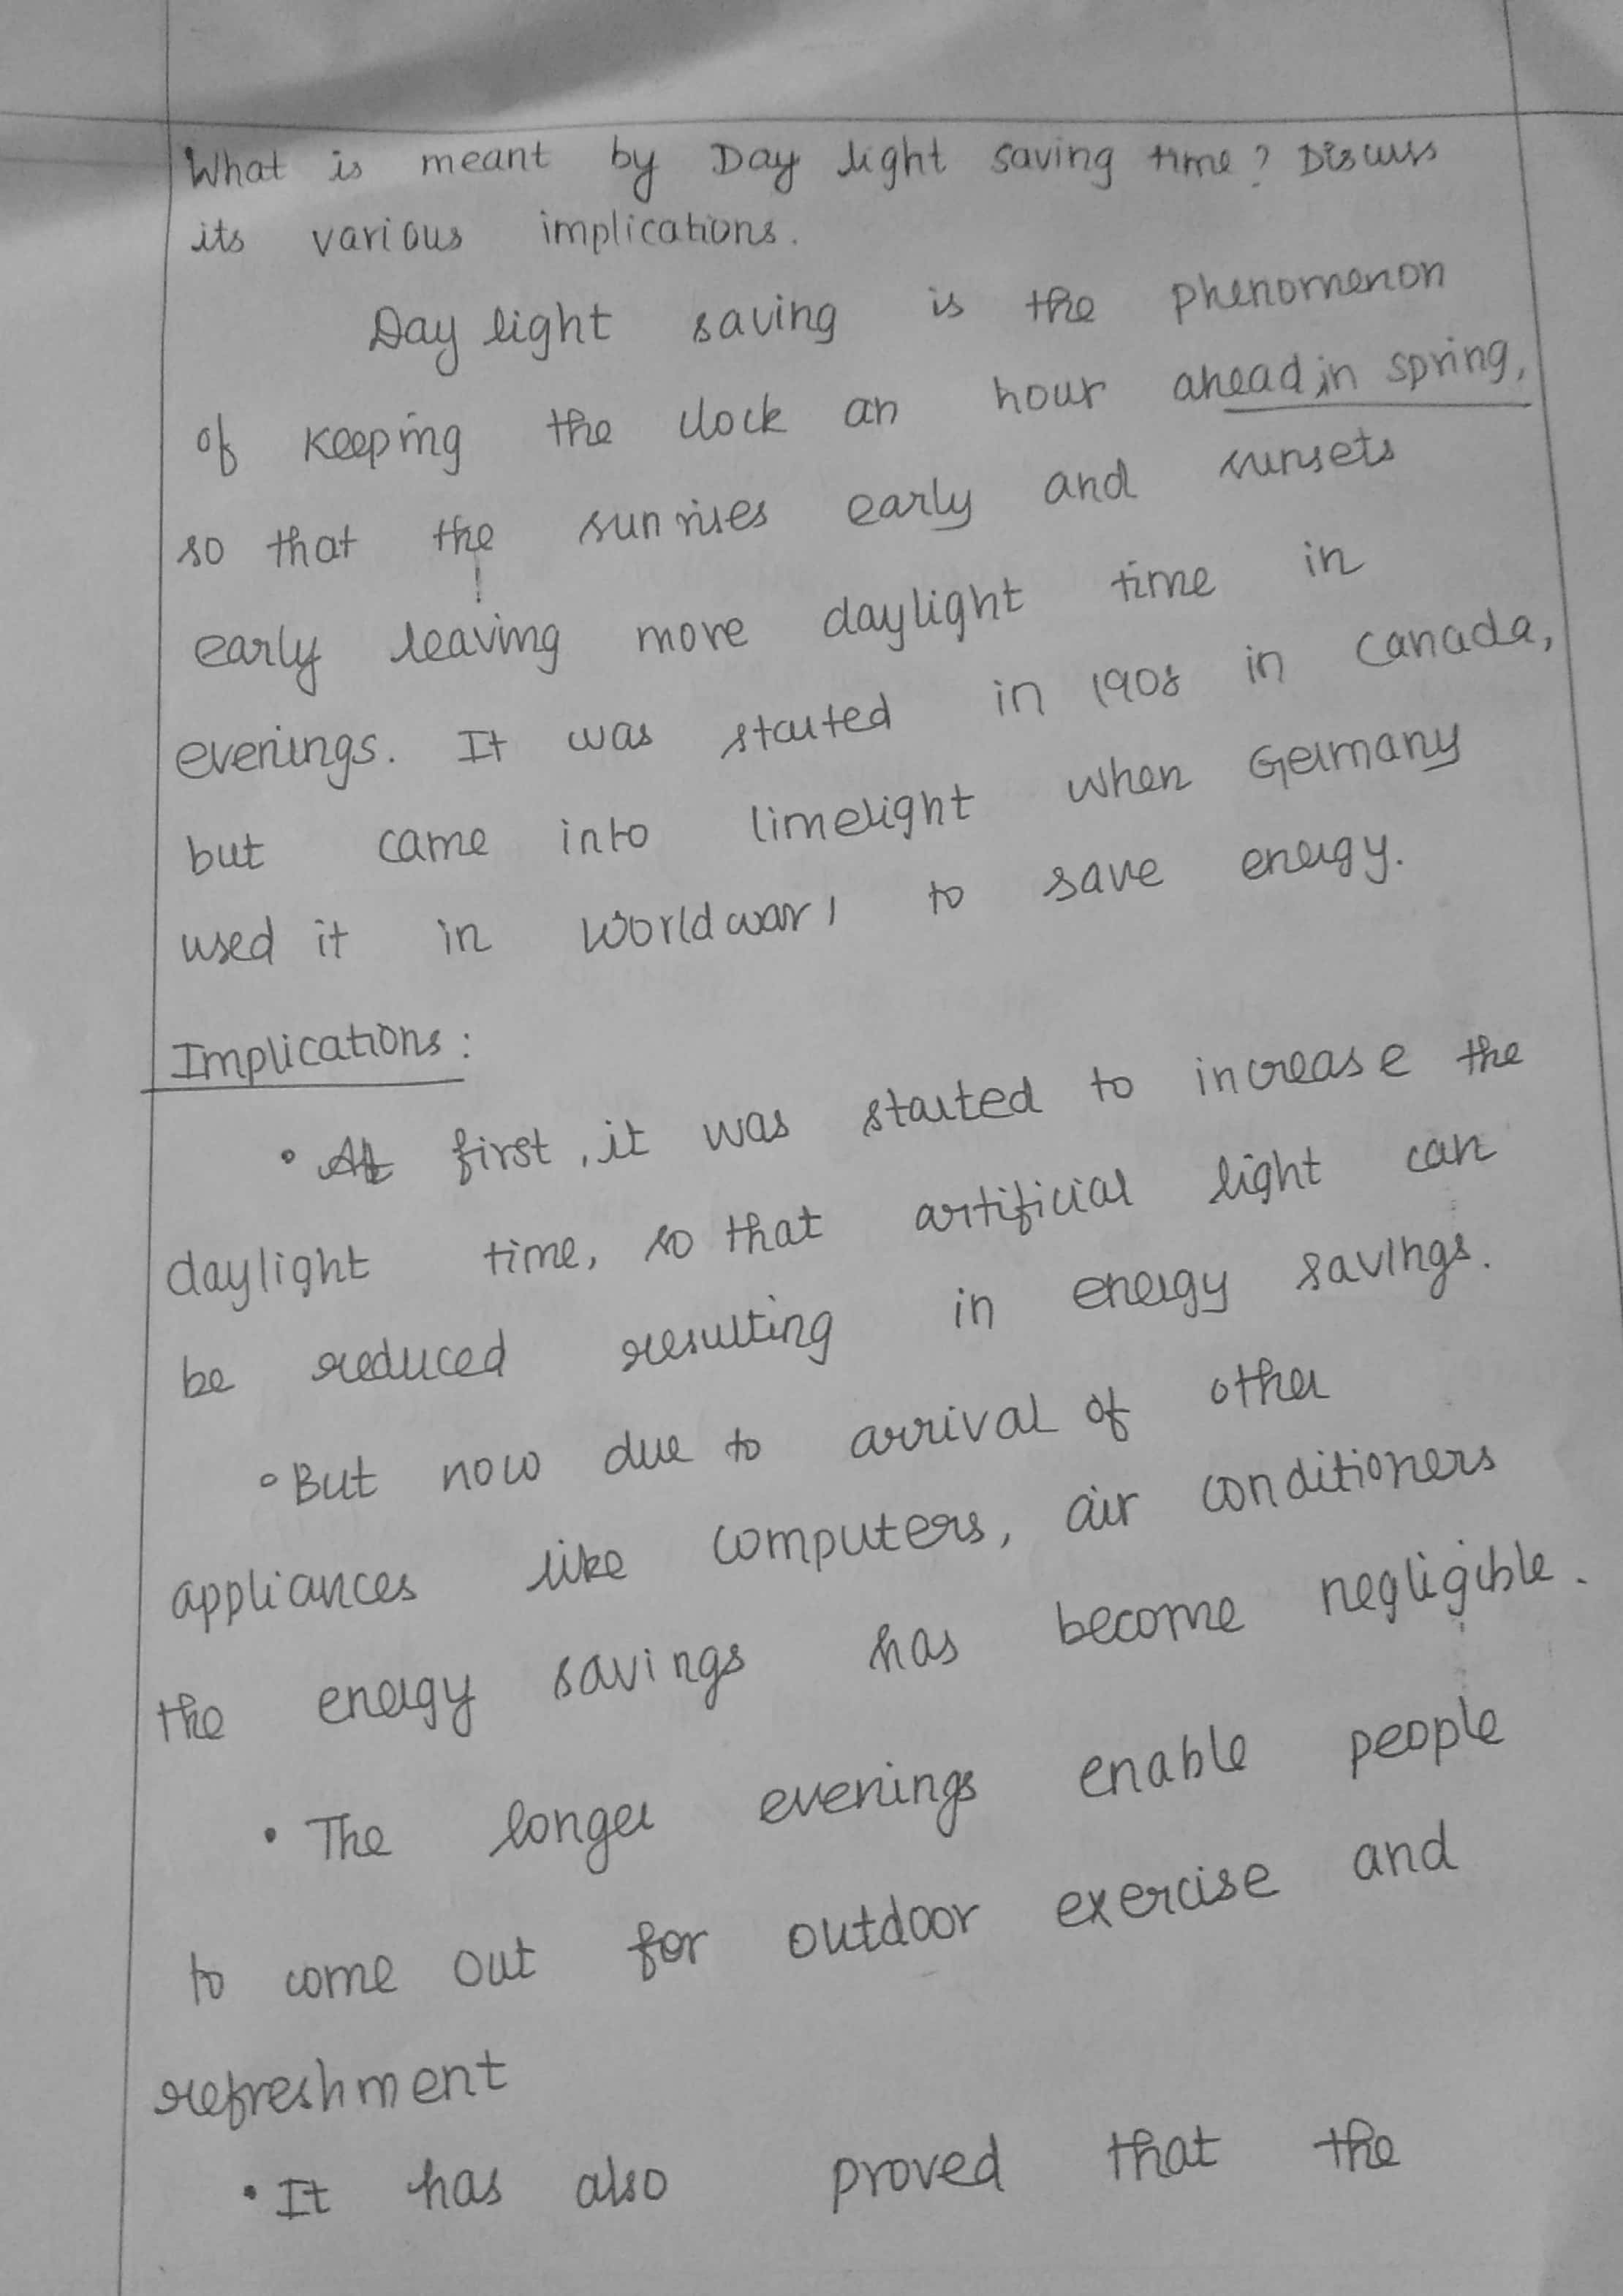 What is meant by Day light saving time? Discuss
its various implications.
Day light saving is the phenomenon
of keeping the clock an hour ahead in spring,
so that the sun rises early and sunsets
early leaving more daylight time in
evenings. It was started in 1908 in Canada,
but came into limelight when Germany
used it in World war 1 to save energy.
Implications:
• At first, it was started to increase the
daylight time, so that artificial light can
be reduced resulting in energy savings.
• But now due to arrival of other
appliances like computers, air conditioners
the energy savings has become negligible.
• The longer evenings enable people
to come out for outdoor exercise and
refreshment
• It has also proved that the